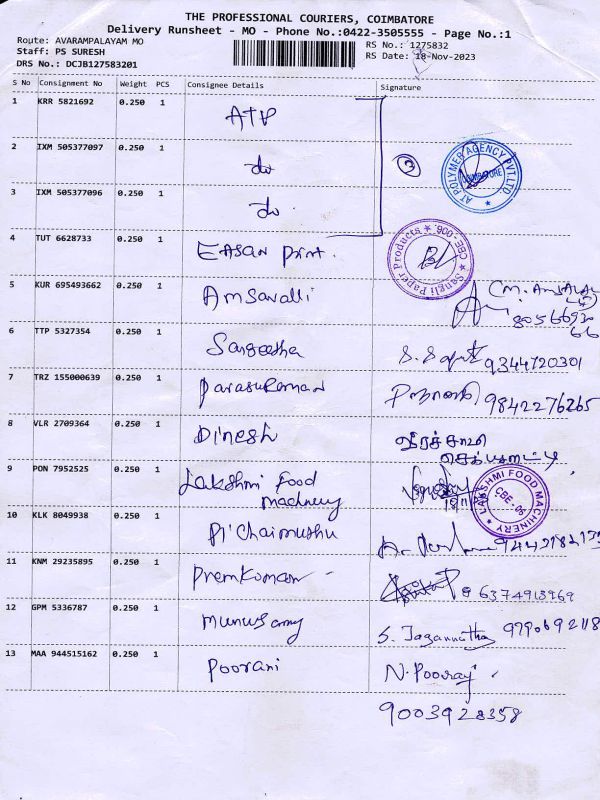 THE PROFESSIONAL COURIERS, COIMBATORE
Delivery Runsheet - MO - Phone No.:0422-3505555 - Page No.:1
Route: AVARAMPALAYAM MO
RS No.: 1275832
Staff: PS SURESH
RS Date: 18-Nov-2023
DRS No.: DCJB127583201
S No Consignment No Weight PCS Consignee Details Signature
1 KRR 5821692 0.250 1 ATP
2 IXM 505377097 0.250 1 do
3 IXM 505377096 0.250 1 do
3
AT POLYMER AGENCY PVT.LTD
COIMBATORE
4 TUT 6628733 0.250 1 EASAN Print.
Sangli Paper Products CBE-006.
5 KUR 695493662 0.250 1 Amsavalli
6 TTP 5327354 0.250 1 Sangeetha 9344720301
7 TRZ 155000639 0.250 1 Parasuraman 9842276265
8 VLR 2709364 0.250 1 Dinesh
9 PON 7952525 0.250 1 Lakshmi Food
Machinery
LAKSHMI FOOD MACHINERY
CBE - 06
10 KLK 8049938 0.250 1 Pitchaimuthu
11 KNM 29235895 0.250 1 Premkumar 6374913969
12 GPM 5336787 0.250 1 Munusamy S. Jagannathan
13 MAA 944515162 0.250 1 Poorani N. Pooraj
9003928358